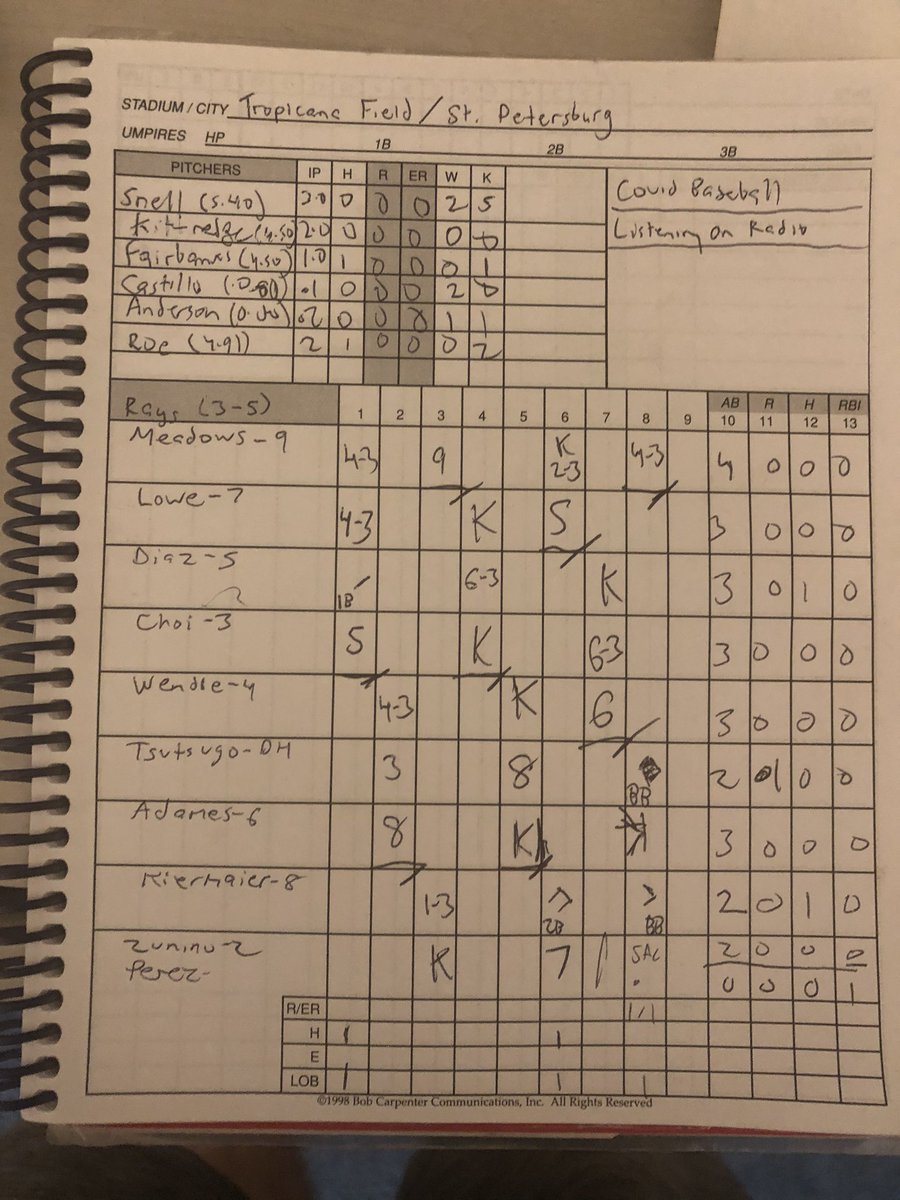 STADIUM/CITY Tropicana Field / St. Petersburg
UMPIRES HP 1B 2B 3B
PITCHERS IP H R ER W K
Snell (5.40) 2.0 0 0 0 2 5
Kittredge (4.50) 2.0 0 0 0 0 0
Fairbanks (4.50) 1.0 1 0 0 0 1
Castillo .1 0 0 0 2 0
Anderson (0.00) .2 0 0 0 1 1
Roe (4.91) 2 1 0 0 0 2
Covid Baseball
Listening on Radio
Rays (3-5) 1 2 3 4 5 6 7 8 9 AB 10 R 11 H 12 RBI 13
Meadows-9 4-3 9 K 2-3 4-3 4 0 0 0
Lowe-7 4-3 K 5 3 0 0 0
Diaz-5 1B 6-3 K 3 0 1 0
Choi-3 5 K 6-3 3 0 0 0
Wendle-4 4-3 K 6 3 0 0 0
Tsutsugo-DH 3 8 BB 2 1 0 0
Adames-6 8 K K 3 0 0 0
Kiermaier-8 1-3 2B BB 2 0 1 0
Zunino-2 K 7 SAC 2 0 0 0
Perez- 0 0 0 1
R/ER 1/1
H 1 1
E
LOB 1 1 1
©1998 Bob Carpenter Communications, Inc. All Rights Reserved